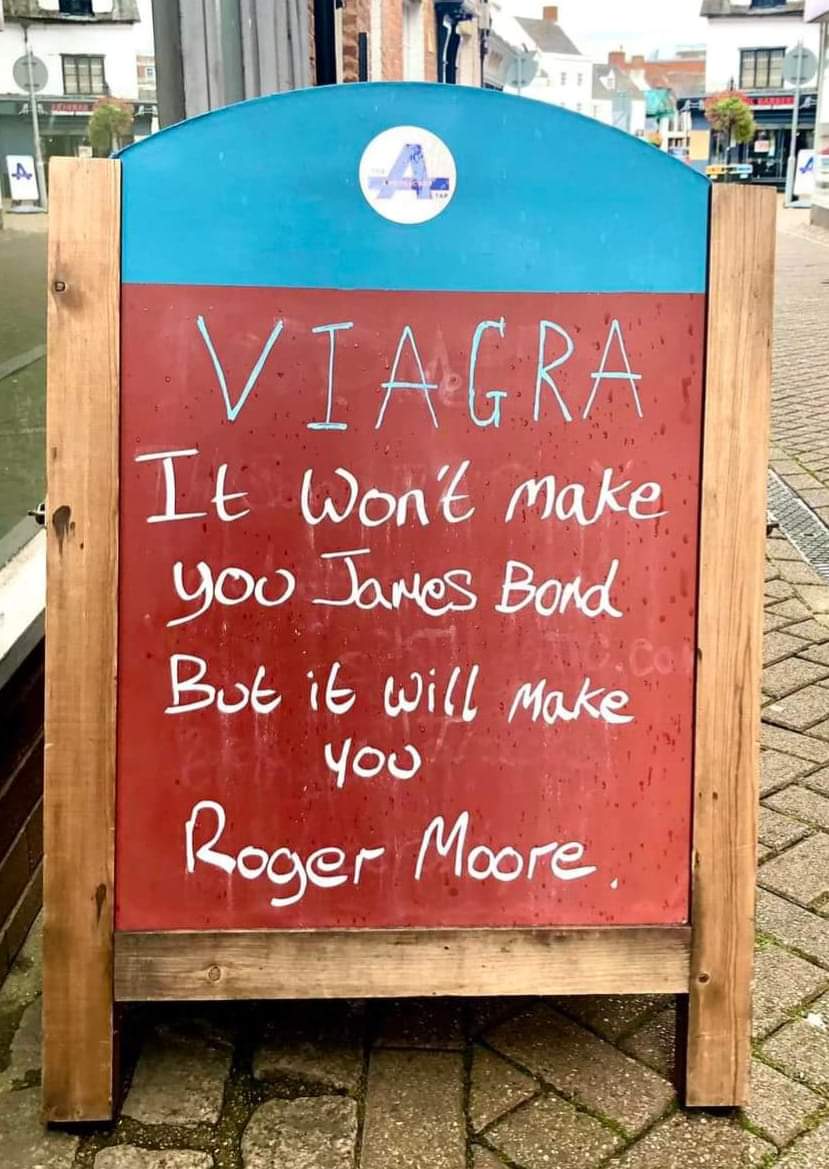 TAP
VIAGRA
It won't make
you James Bond
But it will make
you
Roger Moore.